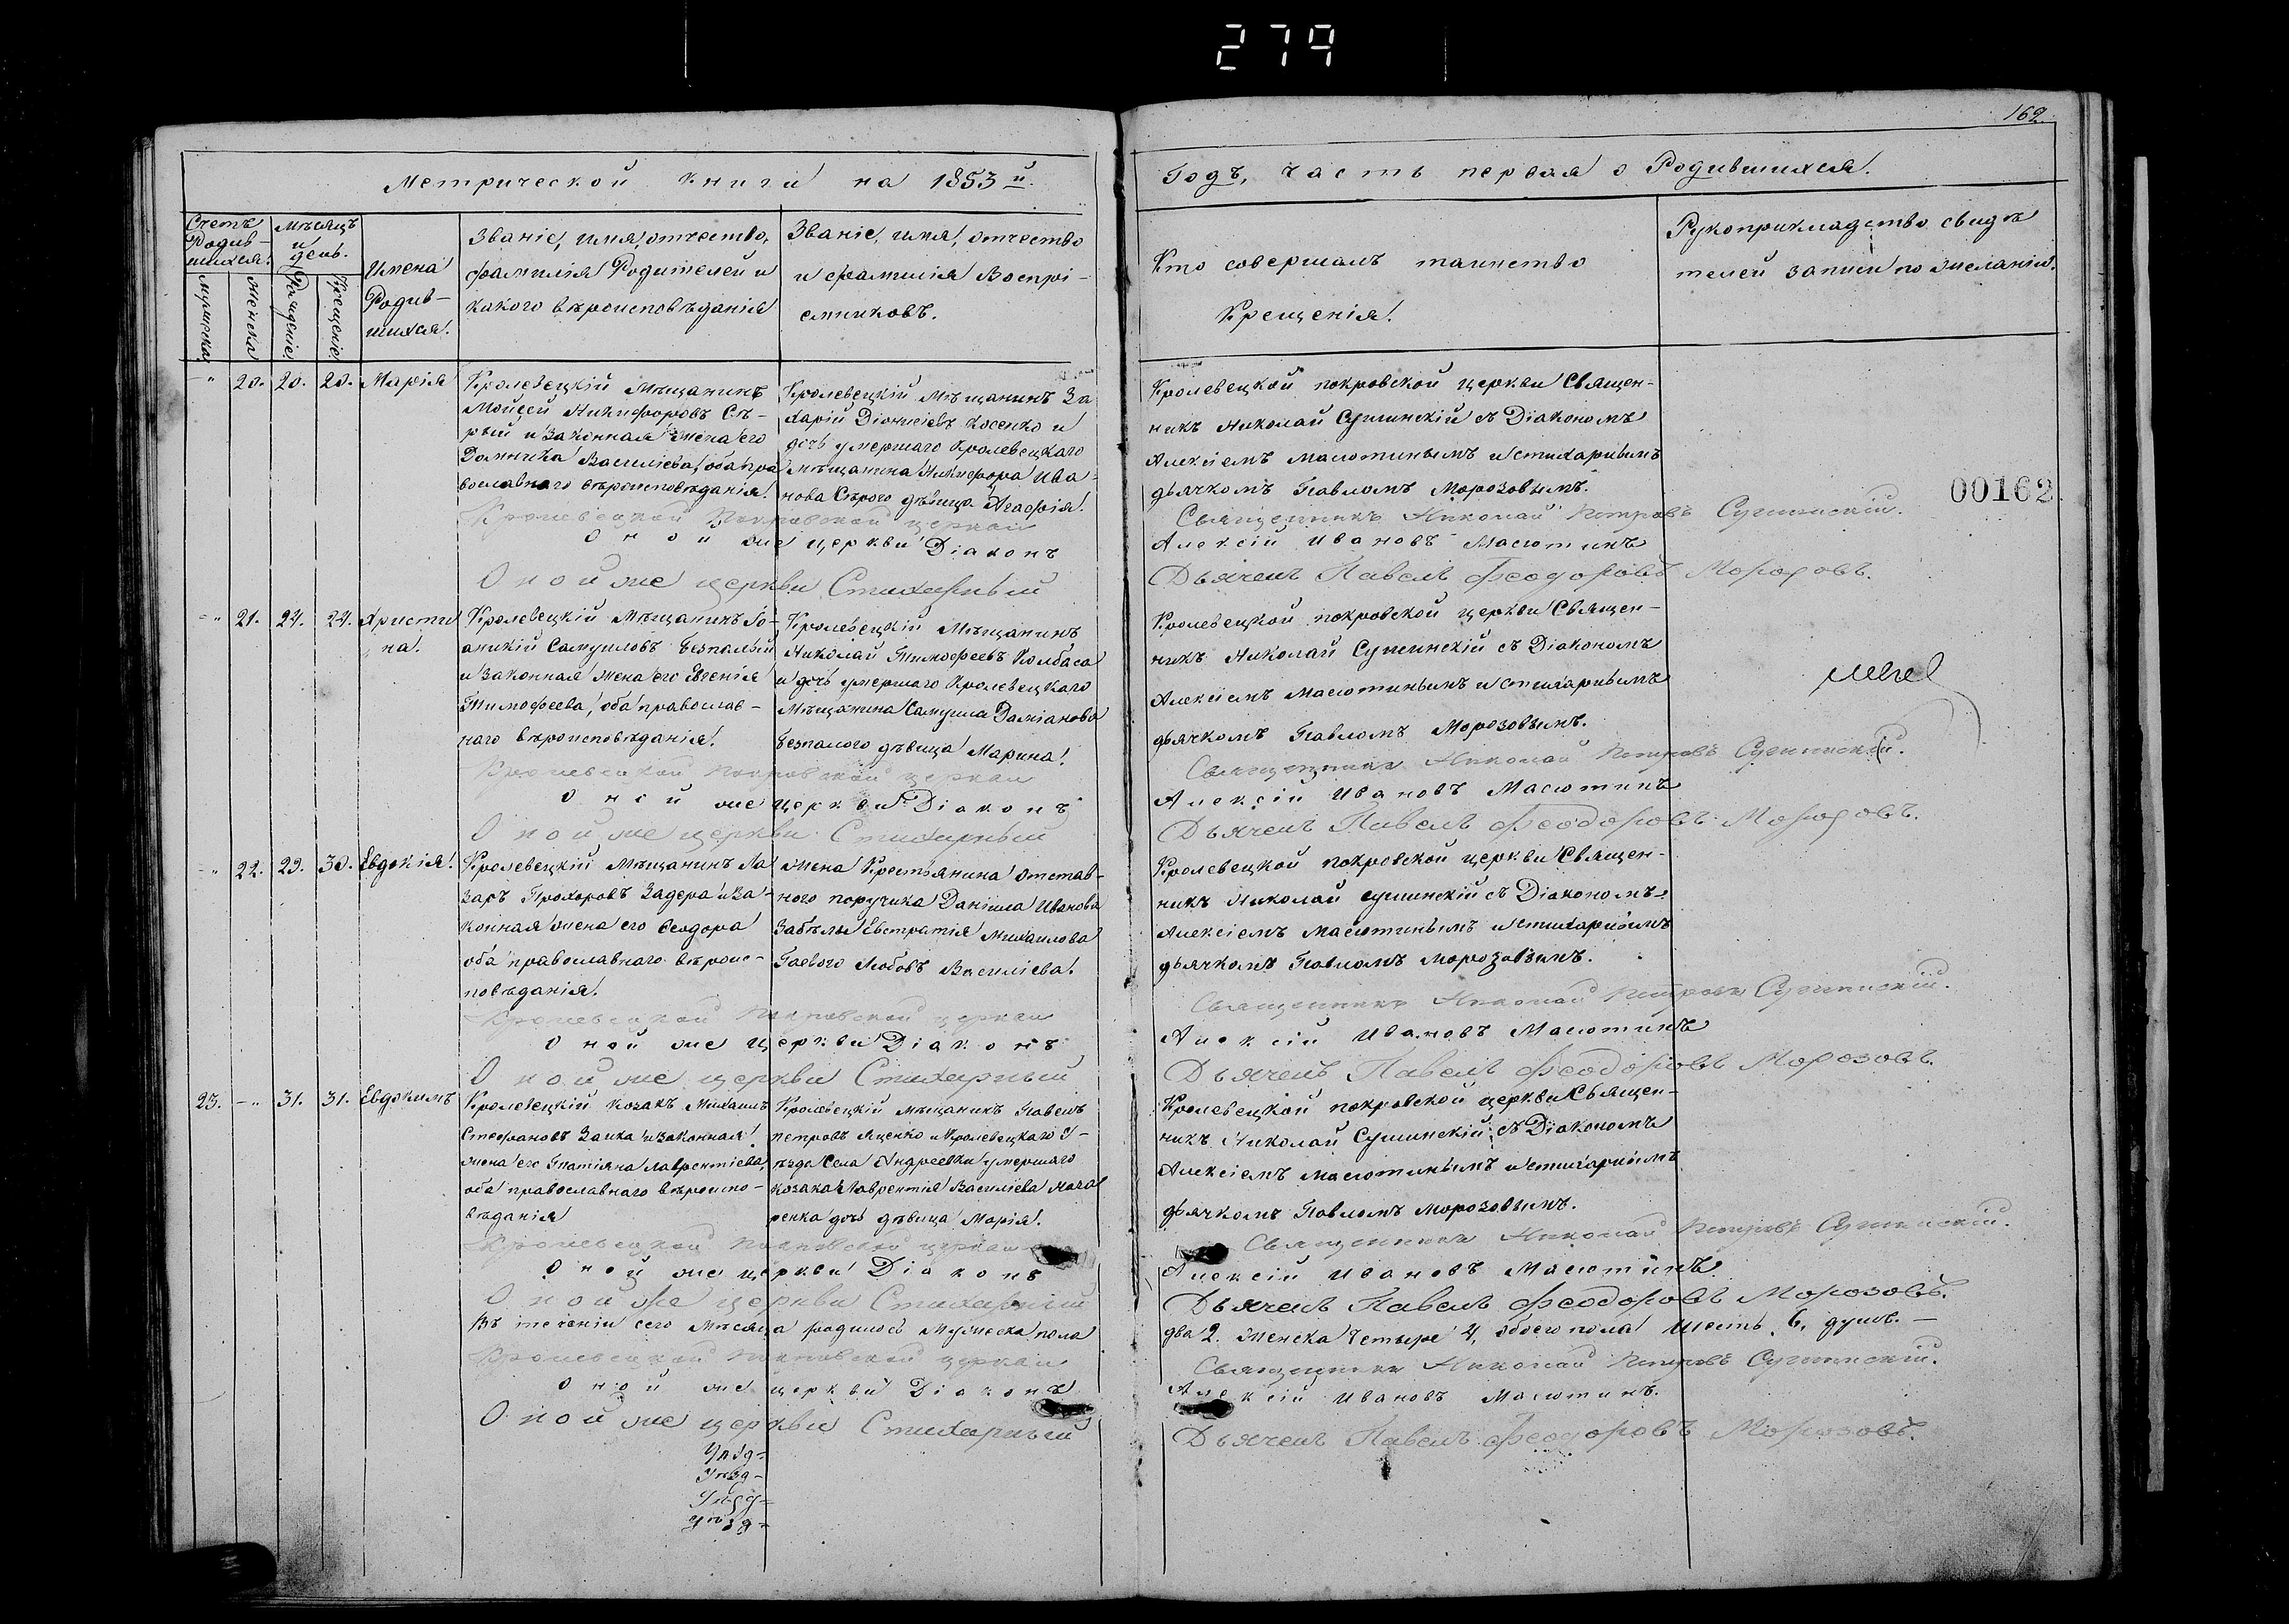 279
162.
Метрической книги на 1853й.
Счетъ Родив-шихся.
мужеска
женска
мѣсяцъ и день.
Рожденіе
Крещеніе
Имена Родив-шихся.
Званіе, имя, отчество,
фамилія Родителей и
какого вѣроисповѣданія
Званіе, имя, отчество
и фамилія Воспрі-
емниковъ.
-" 20. 20. 20. Марія
Кролевецкій Мѣщанинъ
Мойсей Никифоровъ Сѣ-
рый и законная жена его
Домника Василіева, оба пра
вославнаго вѣроисповѣданія.
Кролевецкій Мѣщанинъ За
харій Діонисіевъ Косенко и
дочь умершаго Кролевецкаго
мѣщанина Никифора Ива-
нова Сѣрого дѣвица Агафія.
Кролевецкой Покровской церкви
Оной же церкви Діаконъ
Оной же церкви Стихарный
-" 21. 24. 24. Христи
на.
Кролевецкій Мѣщанинъ Іо-
аникій Самуиловъ Безпалый
и законная жена его Евгенія
Тимофеева, оба православ-
наго вѣроисповѣданія.
Кролевецкій Мѣщанинъ
Николай Тимофеевъ Колбаса
и дочь умершаго Кролевецкаго
Мѣщанина Самуила Даміанова
Безпалого дѣвица Марина.
Кролевецкой Покровской церкви
Оной же церкви Діаконъ
Оной же церкви Стихарный
-" 22. 29. 30. Евдокія.
Кролевецкій Мѣщанинъ Ла
заръ Прохоровъ Задера и за-
конная жена его Феодора
оба православнаго вѣроис-
повѣданія.
Жена Крестьянина отстав-
ного поручика Даніила Иванова
Забѣлы Евстратія Михаилова
Гаевого Любовъ Василіева.
Кролевецкой Покровской церкви
Оной же церкви Діаконъ
Оной же церкви Стихарный
23. -" 31. 31. Евдокимъ
Кролевецкій козакъ Михаилъ
Стефановъ Заика и законная
жена его Татіяна Лаврентіева,
оба православнаго вѣроиспо-
вѣданія
Кролевецкій мѣщанинъ Павелъ
Петровъ Яценко и Кролевецкаго у-
ѣзда села Андреевки умершаго
козака Лаврентія Василіева Мака
ренка дочь дѣвица Марія.
Кролевецкой Покровской церкви
Оной же церкви Діаконъ
Оной же церкви Стихарный
Въ теченіи сего Мѣсяца родилось Мужеска пола
Кролевецкой Покровской церкви
Оной же церкви Діаконъ
Оной же церкви Стихарный
Годъ, часть первая о Родившихся.
Кто совершалъ таинство
Крещенія.
Рукоприкладство свидѣ
телей записи по желанію.
Кролевецкой покровской церкви Священ-
никъ Николай Сушинскій съ Діакономъ
Алексіемъ Масютинымъ и стихарнымъ
дьячкомъ Павломъ Морозовымъ.
00162
Священникъ Николай Петровъ Сушинскій.
Алексій Ивановъ Масютинъ
Дьячекъ Павелъ Феодоровъ Морозовъ.
Кролевецкой покровской церкви Священ-
никъ Николай Сушинскій съ Діакономъ
Алексіемъ Масютинымъ и стихарнымъ
дьячкомъ Павломъ Морозовымъ.
Священникъ Николай Петровъ Сушинскій.
Алексій Ивановъ Масютинъ
Дьячекъ Павелъ Феодоровъ Морозовъ.
Кролевецкой покровской церкви Священ-
никъ Николай Сушинскій съ Діакономъ
Алексіемъ Масютинымъ и стихарнымъ
дьячкомъ Павломъ Морозовымъ.
Священникъ Николай Петровъ Сушинскій.
Алексій Ивановъ Масютинъ
Дьячекъ Павелъ Феодоровъ Морозовъ.
Кролевецкой покровской церкви Священ-
никъ Николай Сушинскій съ Діакономъ
Алексіемъ Масютинымъ и стихарнымъ
дьячкомъ Павломъ Морозовымъ.
Священникъ Николай Петровъ Сушинскій.
Алексій Ивановъ Масютинъ.
Дьячекъ Павелъ Феодоровъ Морозовъ.
два 2. женска четыре 4, обоего пола шесть 6, душъ. —
Священникъ Николай Петровъ Сушинскій.
Алексій Ивановъ Масютинъ.
Дьячекъ Павелъ Феодоровъ Морозовъ.